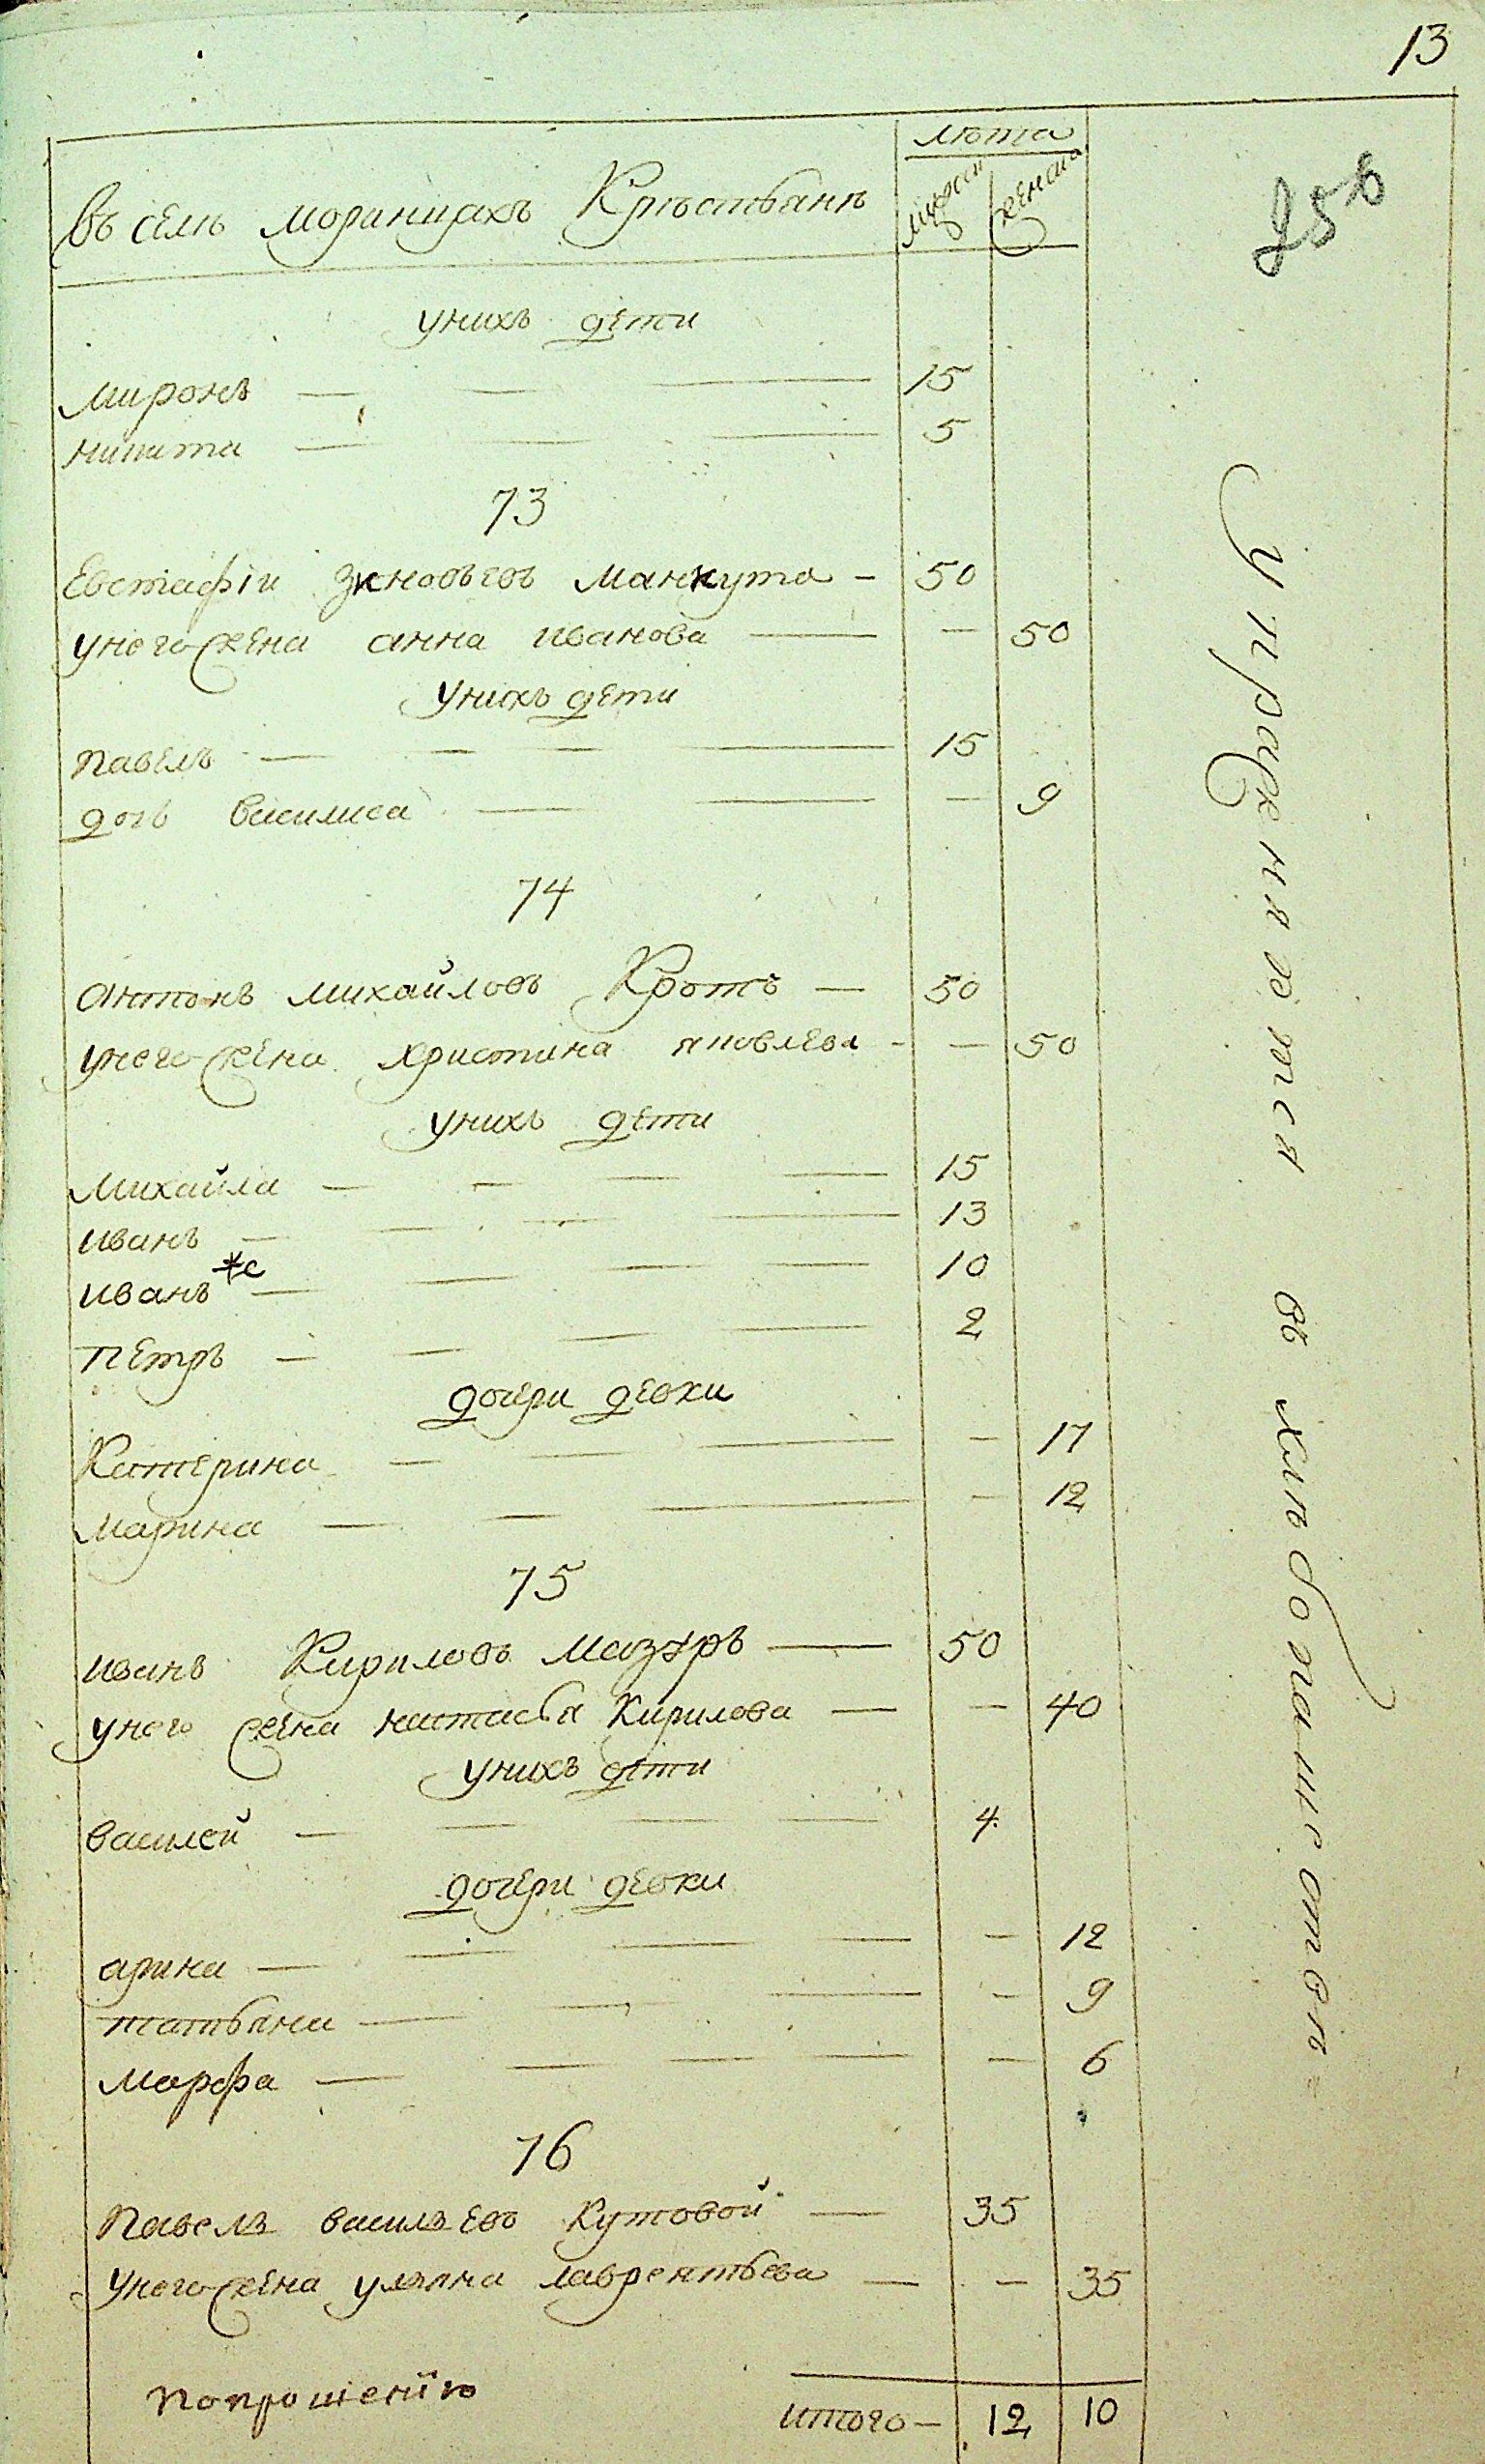 13
лѣта
въ селѣ моринцахъ Крѣстьянѣ мужска женска
унихъ дети
миронъ — 15
никита — 5
73
Евстафіи зиновьевъ манкута — 50
унего жена анна иванова — — 50
унихъ дети
павелъ — 15
дочь василиса — — 9
74
антонъ михайловъ Кротъ — 50
унего жена христина яковлева — — 50
унихъ дети
михайла — 15
иванъ — 13
иванъ *е — 10
петръ — 2
дочери девки
Катерина — — 17
марина — — 12
75
иванъ Кириловъ мазуръ — 50
унего жена настасья Кирилова — — 40
унихъ дети
василей — 4
дочери девки
арина — — 12
татьяна — — 9
марфа — — 6
76
павелъ васильевъ Кутовой — 35
унего жена ульяна лаврентьева — — 35
итого — 12 10
попрошению
упражняются въ хлѣбопашестве